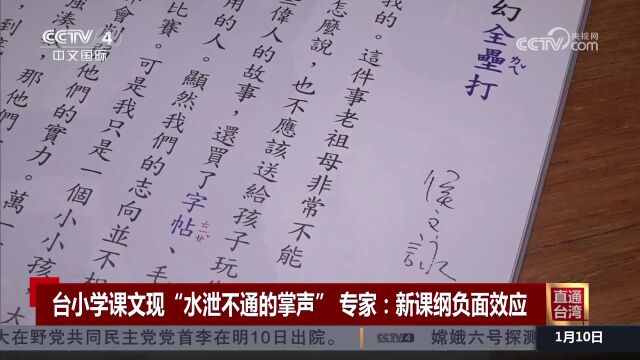 CCTV 4
中文国际
央视网
CCTV.com
幻全壘打
我的。這件事老祖母非常不能
怎麼說，也不應該送給孩子玩
些偉人的故事，還買了字帖、毛
用的人。顯然我們的志向並不
比賽。可是我只是一個小小孩
他們的實力。萬一
那他們
台小学课文现“水泄不通的掌声” 专家：新课纲负面效应
直通台湾
大在野党共同民主党党首李在明10日出院。 CCTV 4 嫦娥六号探测
1月10日